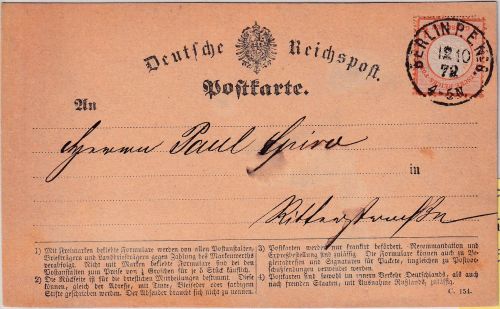 Deutsche Reichspost.
Postkarte.
BERLIN P.E. Nº 6
12 10
72
4-5N.
An
Herrn Paul Spiro
in
Ritterstraße
1) Mit Freimarken beklebte Formulare werden von allen Postanstalten,
Briefträgern und Landbriefträgern gegen Zahlung des Markenwerths
verabfolgt. Nicht mit Marken beklebte Formulare sind bei den
Postanstalten zum Preise von ¼ Groschen für je 5 Stück käuflich.
2) Die Rückseite ist für die brieflichen Mittheilungen bestimmt. Diese
können, gleich der Adresse, mit Tinte, Bleifeder oder farbigem
Stifte geschrieben werden. Der Absender braucht sich nicht zu nennen.
3) Postkarten werden nur frankirt befördert. Recommandation und
Expreßbestellung sind zulässig. Die Formulare können auch zu Be-
gleitadressen und Signaturen für Packete, ungleichen zu Postvor-
schußsendungen verwendet werden.
4) Postkarten sind sowohl im innern Verkehr Deutschlands, als auch
nach fremden Staaten, mit Ausnahme Rußlands, zulässig.
C. 154.